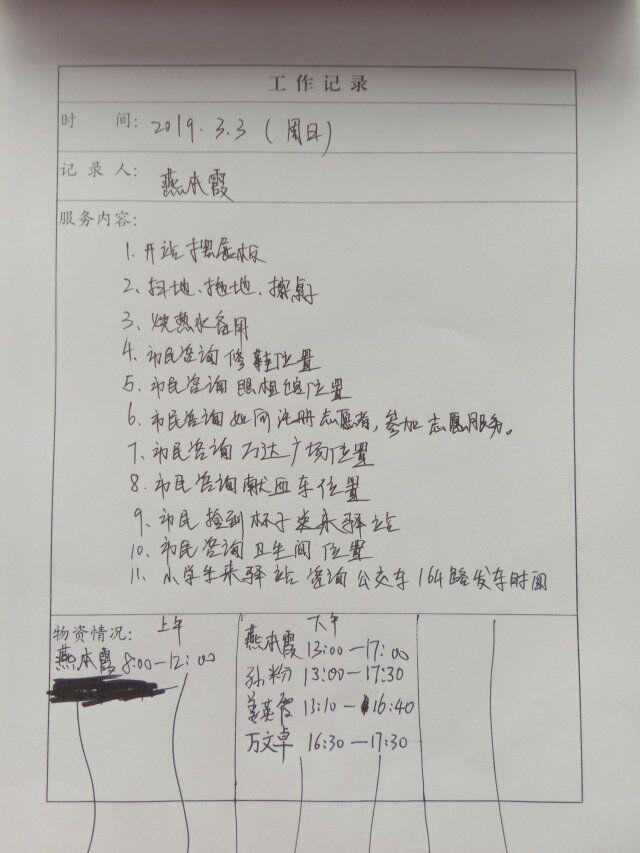 工作记录
时 间: 2019.3.3 (周日)
记录人: 燕本霞
服务内容:
1. 开站摆展板
2. 扫地、拖地、擦桌子
3. 烧热水备用
4. 市民咨询修鞋位置
5. 市民咨询照相馆位置
6. 市民咨询如何注册志愿者,参加志愿服务。
7. 市民咨询万达广场位置
8. 市民咨询献血车位置
9. 市民捡到杯子送来驿站
10. 市民咨询卫生间位置
11. 小学生来驿站咨询公交车164路发车时间
物资情况: 上午 下午
燕本霞 8:00—12:00 燕本霞 13:00—17:00
孙粉 13:00—17:30
姜英 13:10—16:40
万文卓 16:30—17:30